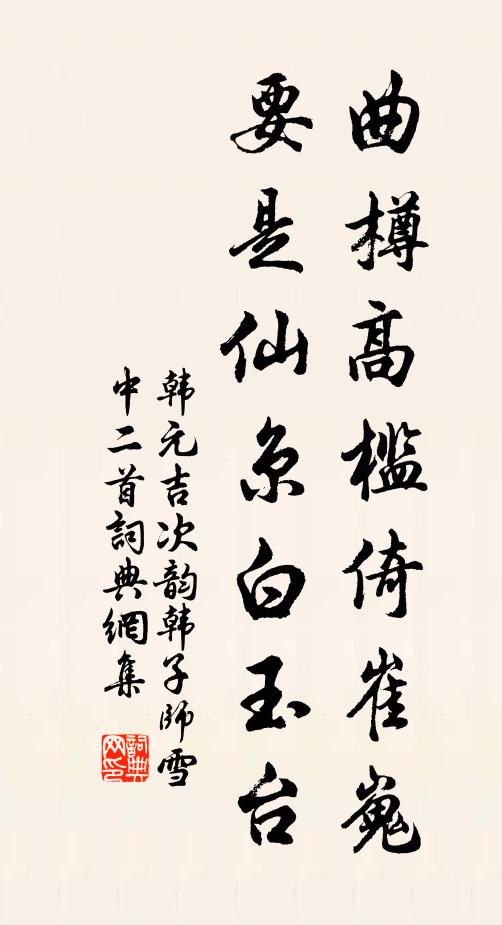 曲樽高槛倚崔嵬
要是仙京白玉台
韩元吉次韵韩子师雪
中二首詞典網集
詞典網印